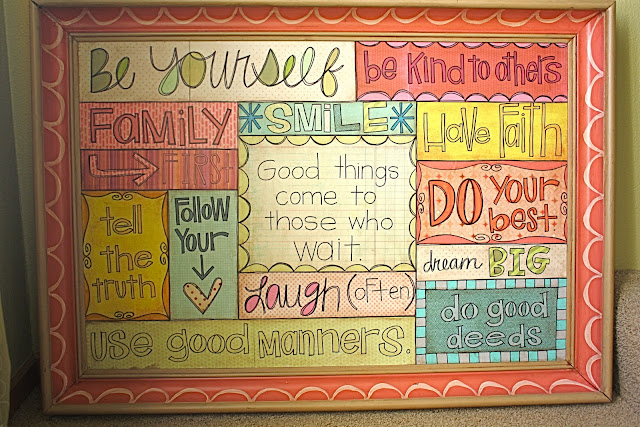 Be Yourself
be Kind to others
FAMILY
FIRST
SMILE
Have Faith
Good things
come to
those who
wait.
DO Your
best
tell
the
truth
Follow
Your
dream BIG
Laugh (often)
do good
deeds
use good Manners.